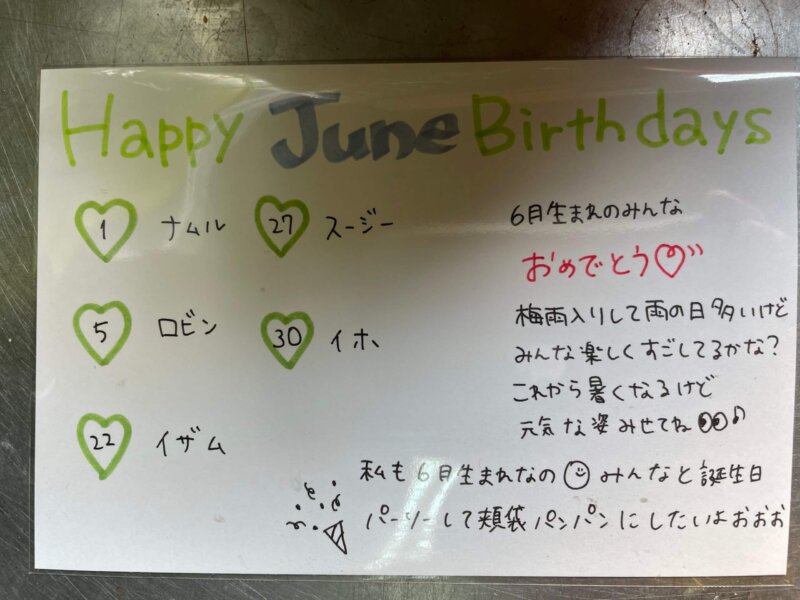 Happy June Birthdays
1 ナムル
27 スージー
5 ロビン
30 イホ
22 イザム
6月生まれのみんな
おめでとう
梅雨入りして雨の日多いけど
みんな楽しくすごしてるかな?
これから暑くなるけど
元気な姿みせてね
私も6月生まれなの みんなと誕生日
パーリーして頬袋パンパンにしたいよおおお